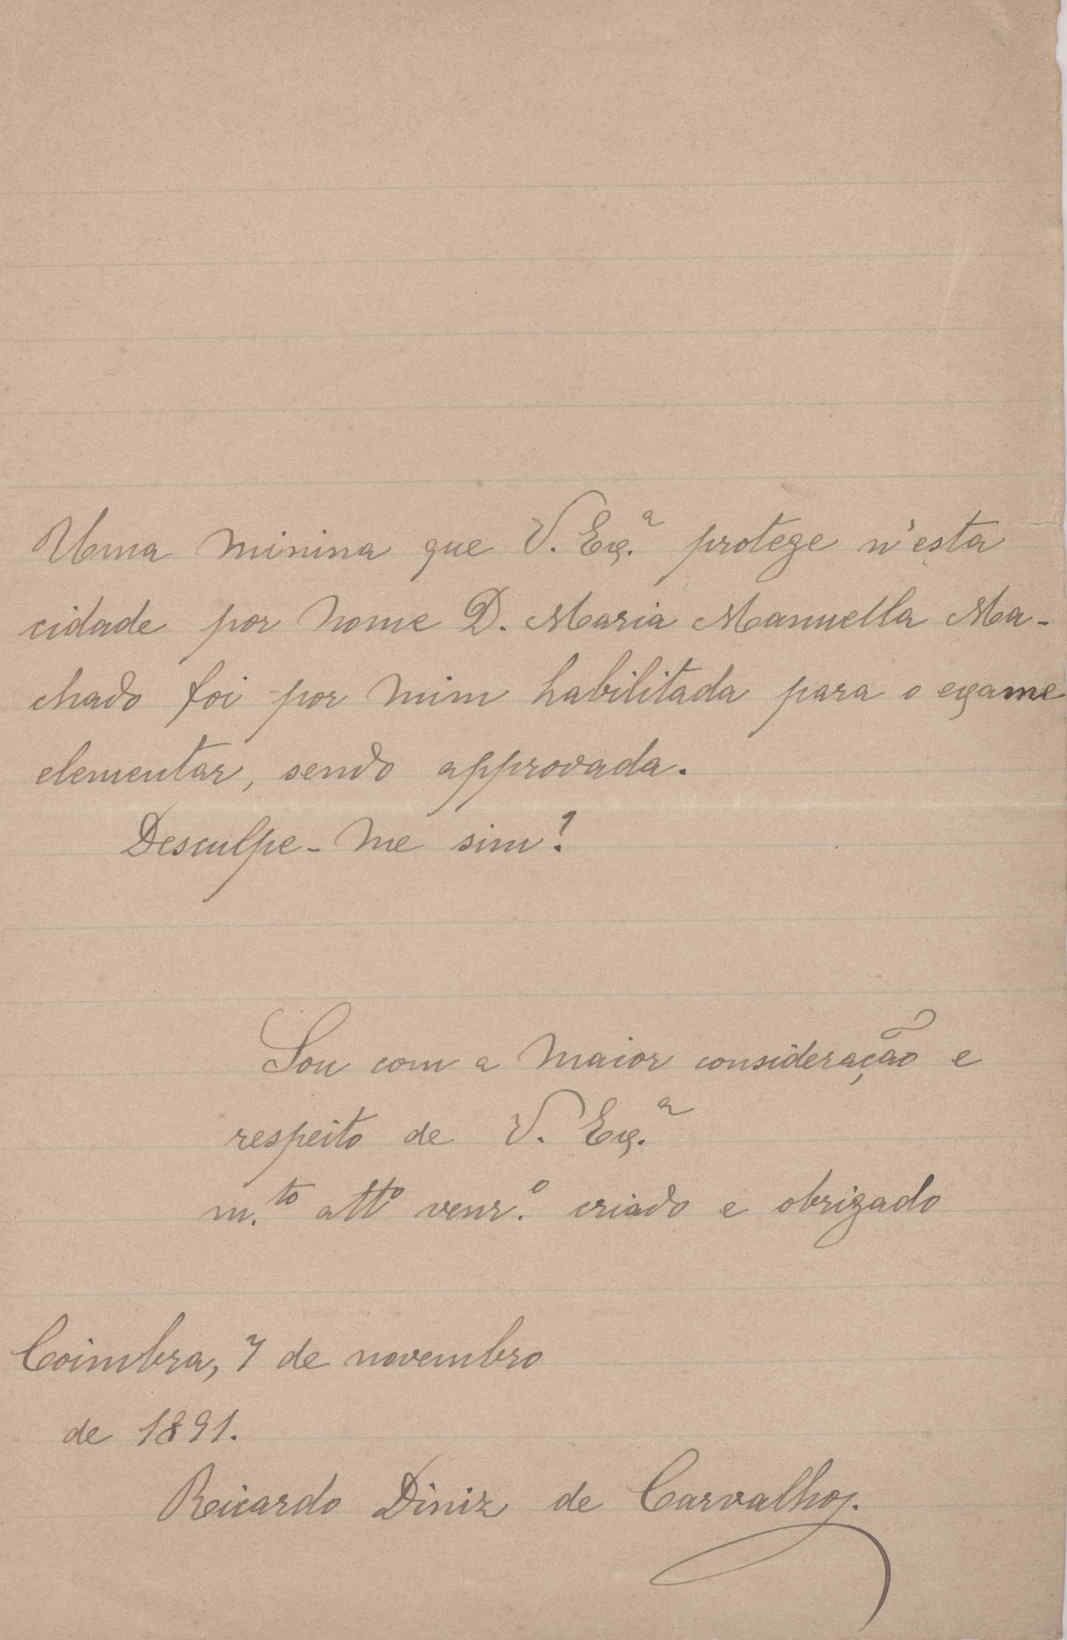 Uma minina que V. Exª. protege n'esta
cidade por nome D. Maria Manuella Ma-
chado foi por mim habilitada para o exame
elementar, sendo approvada.
Desculpe-me sim?
Sou com a maior consideração e
respeito de V. Exª.
m.to atto venr.o criado e obrigado
Coimbra, 7 de novembro
de 1891.
Ricardo Diniz de Carvalho.